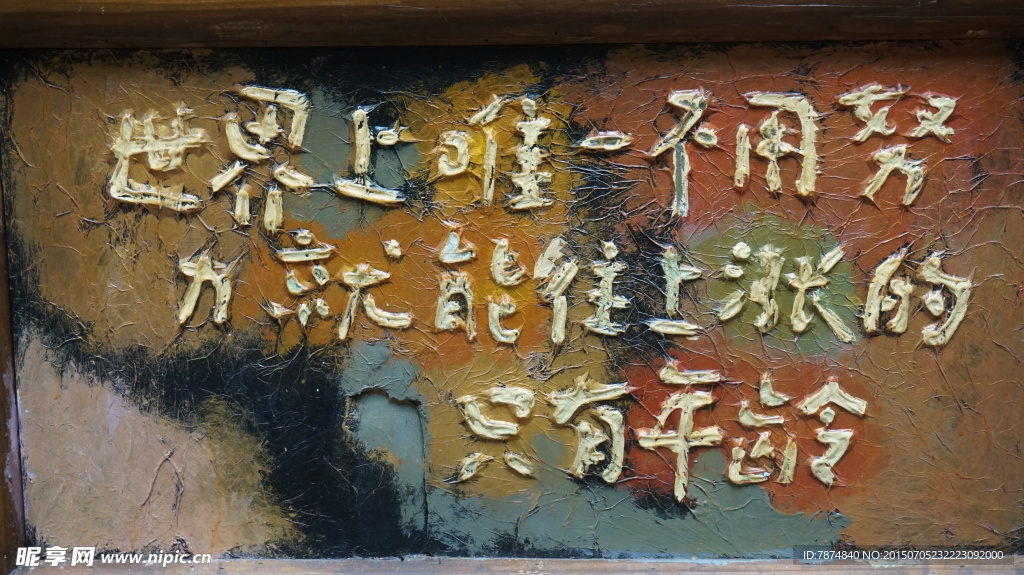 世界上唯一不用努
力就能往上涨的
只有年龄
昵享网 www.nipic.cn
ID:7874840 NO:20150705232223092000